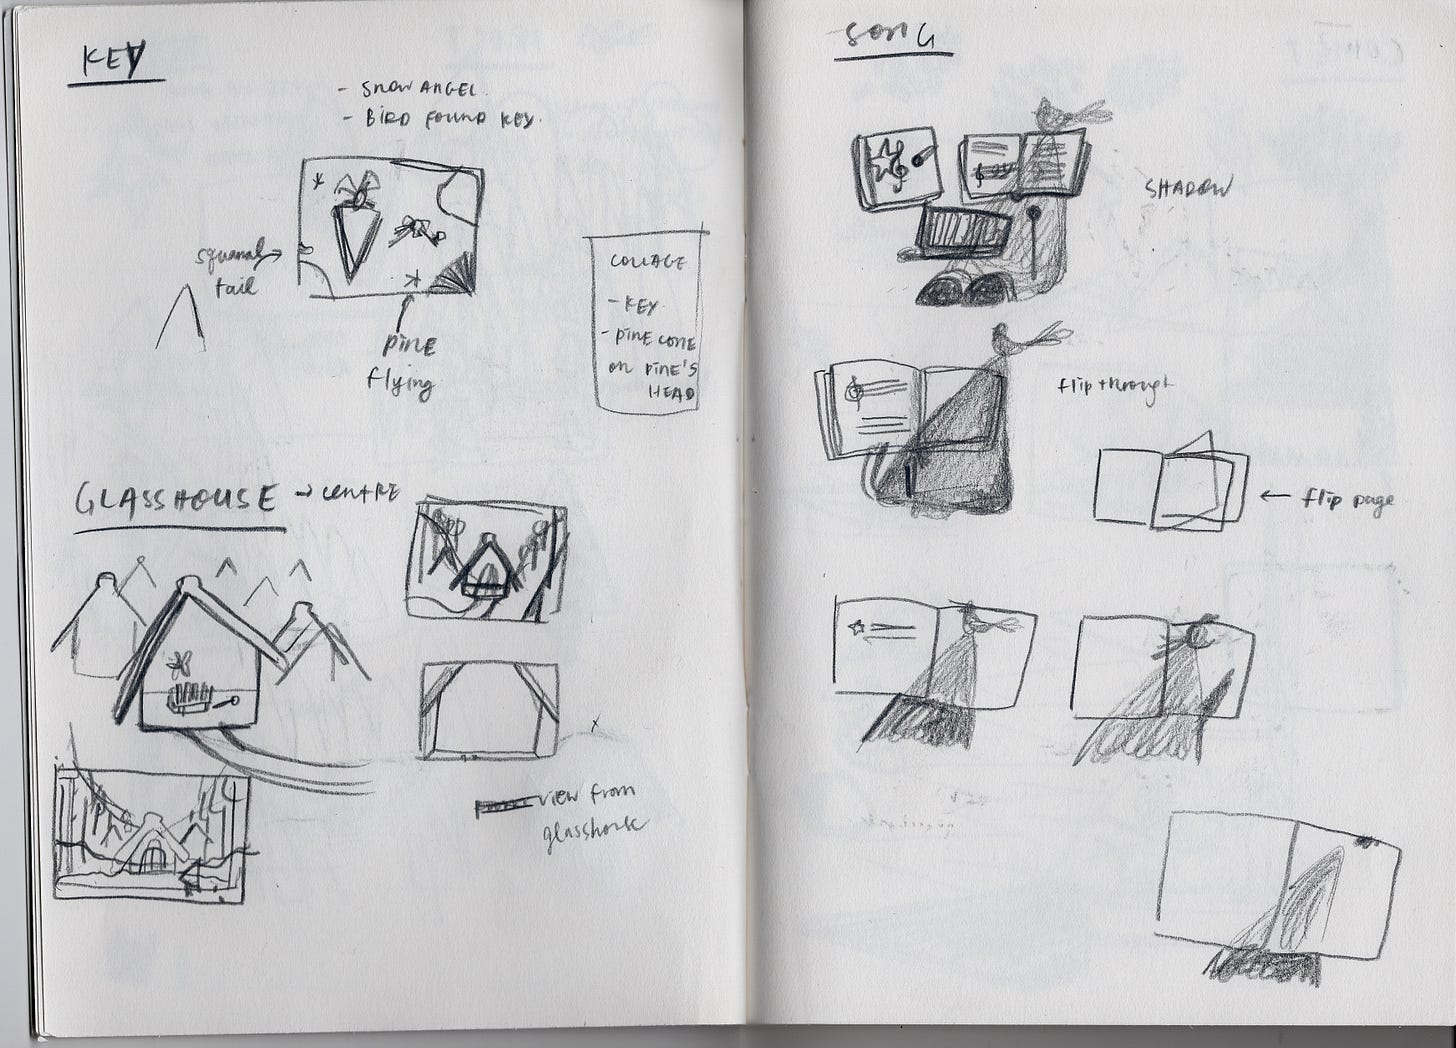 KEY
- SNOW ANGEL
- BIRD FOUND KEY.
squirrel
tail
PINE
flying
COLLAGE
- KEY
- PINE CONE
ON PINE'S
HEAD
GLASSHOUSE → CENTRE
view from
glasshouse
SONG
SHADOW
flip through
← flip page